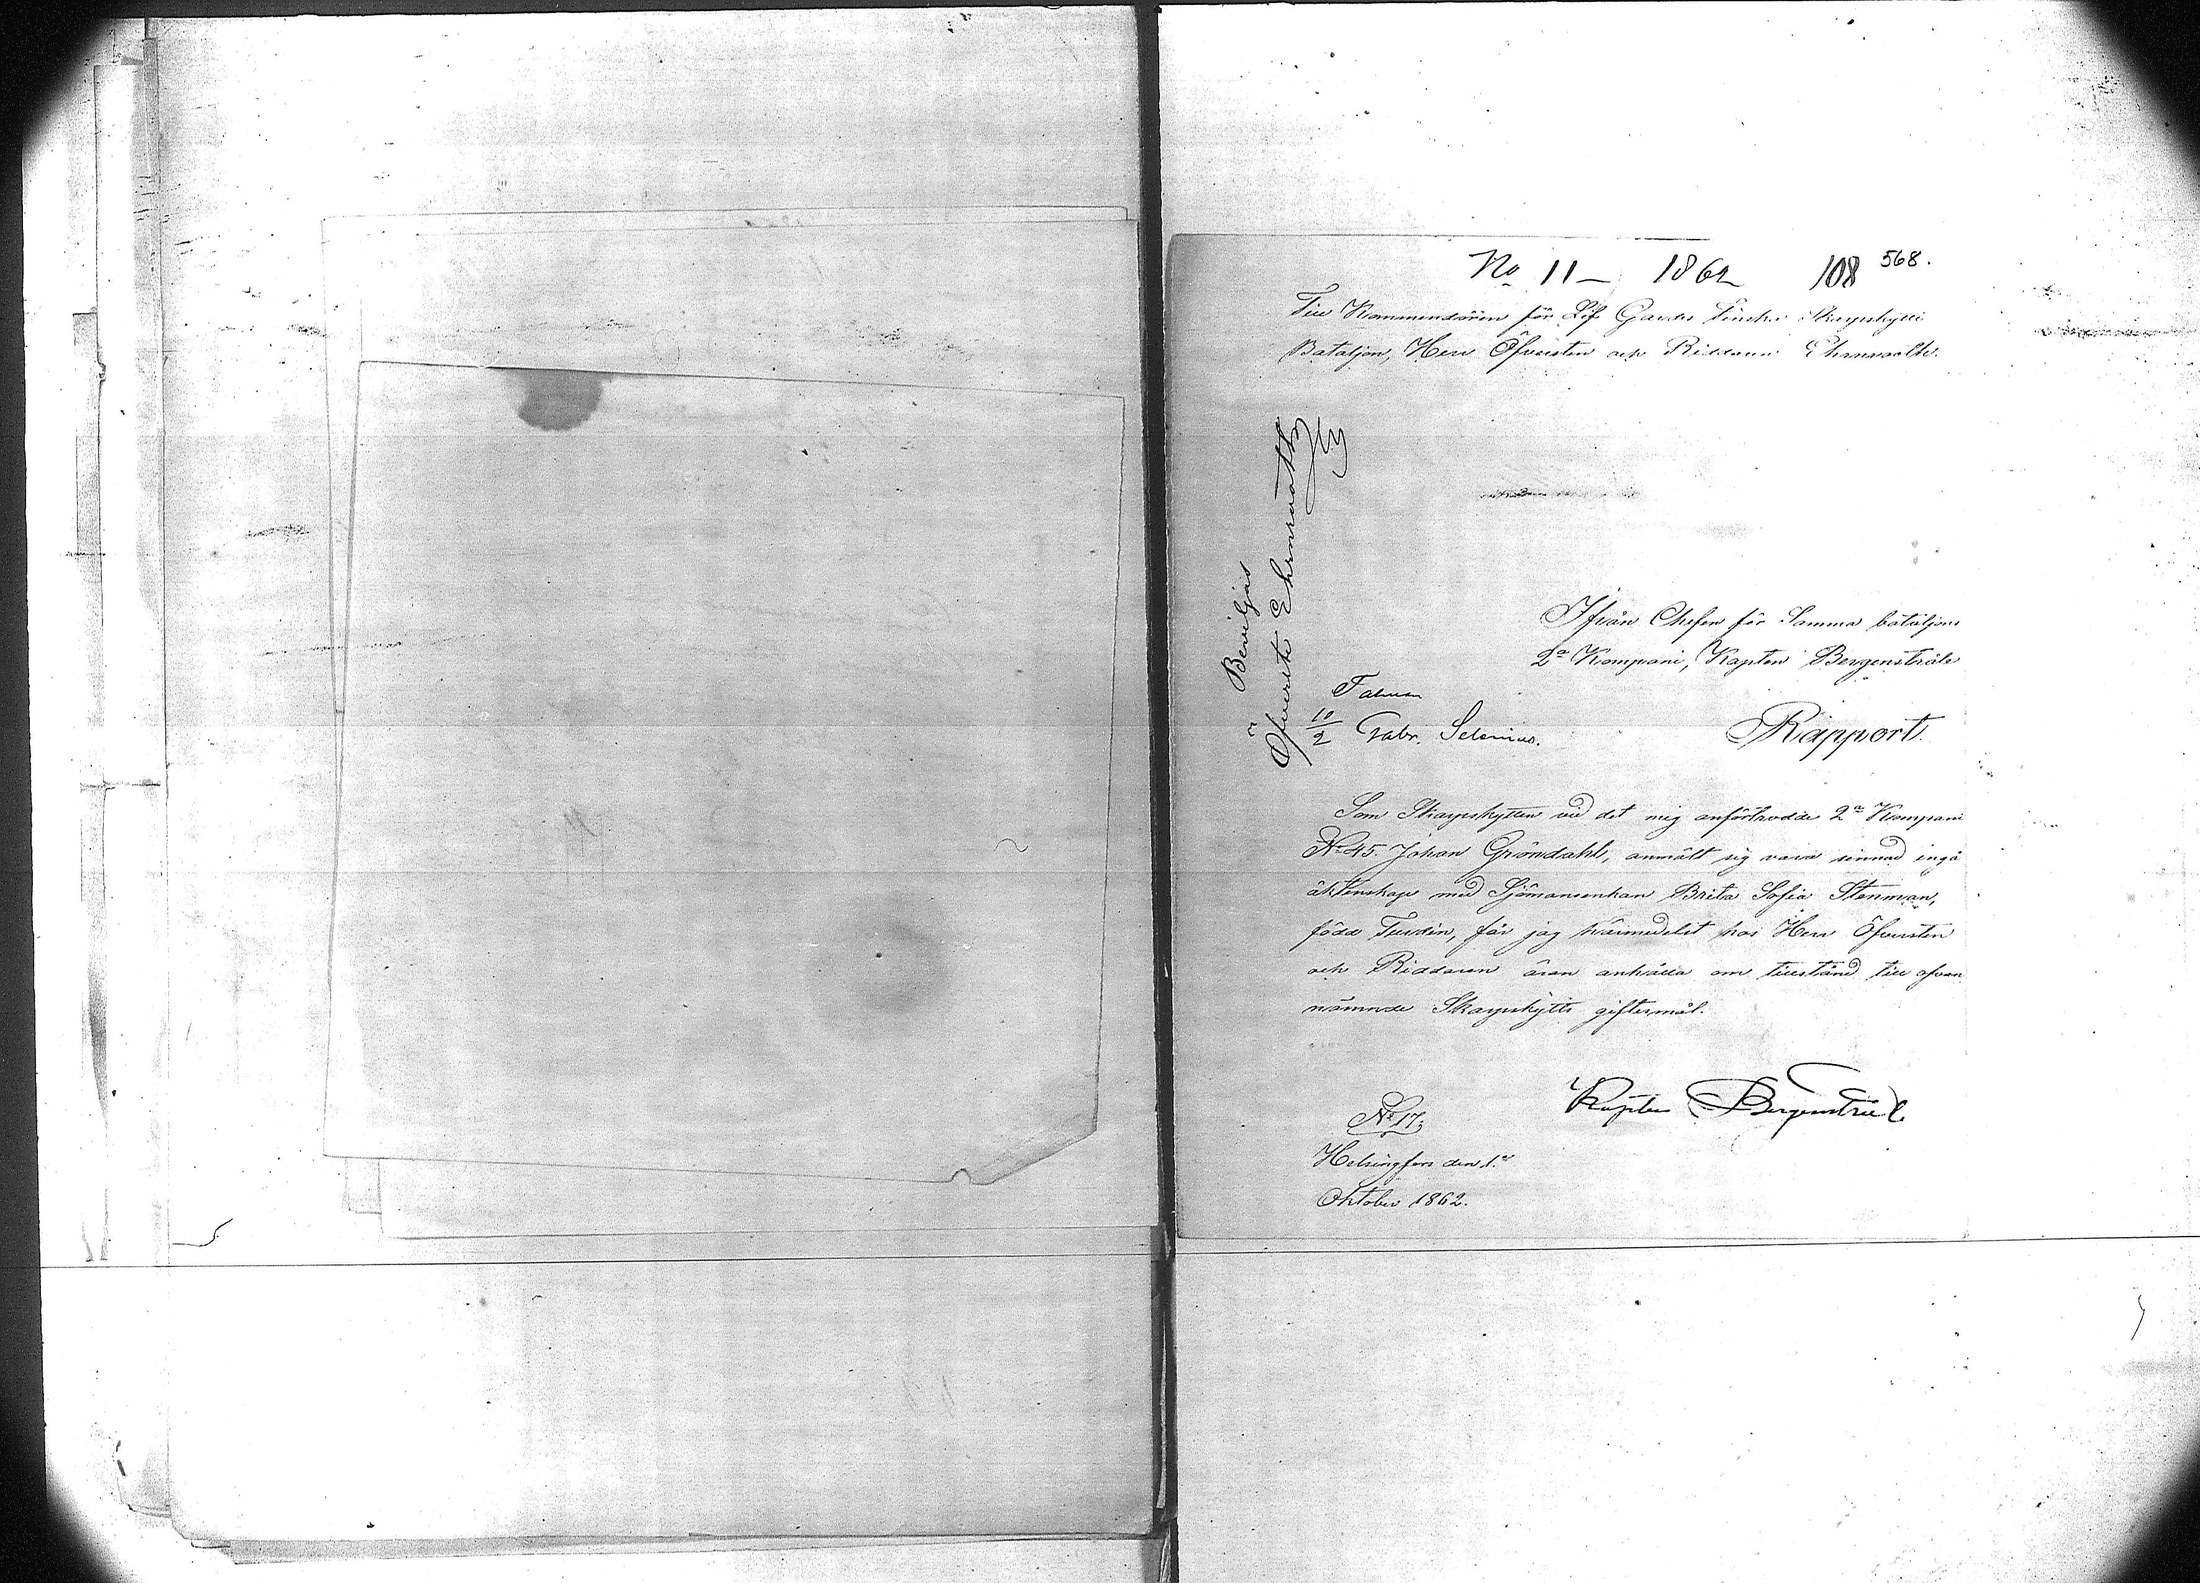 No 11 — 1862 108 568.
Till Kommendören för Lif Gardes Finska Skarpskytte
Bataljon, Herr Öfversten och Riddaren Ehrnrooth.
Beviljas
Öfverste Ehrnrooth
Ifrån Chefen för Samma bataljons
2a Kompani, Kapten Bergenstråle
10/2 Gabr. Selenius.
Rapport.
Som Skarpskytten vid det mig anförtrodde 2a Kompani
No 45. Johan Gröndahl, anmält sig vara sinnad ingå
äktenskap med Sjömansenkan Brita Sofia Stenman,
född, får jag härmedelst hos Herr Öfversten
och Riddaren äran anhålla om tillstånd till ofvan
nämnde Skarpskytts giftermål.
Kapten Bergenstråle
No 17.
Helsingfors den 1a
Oktober 1862.